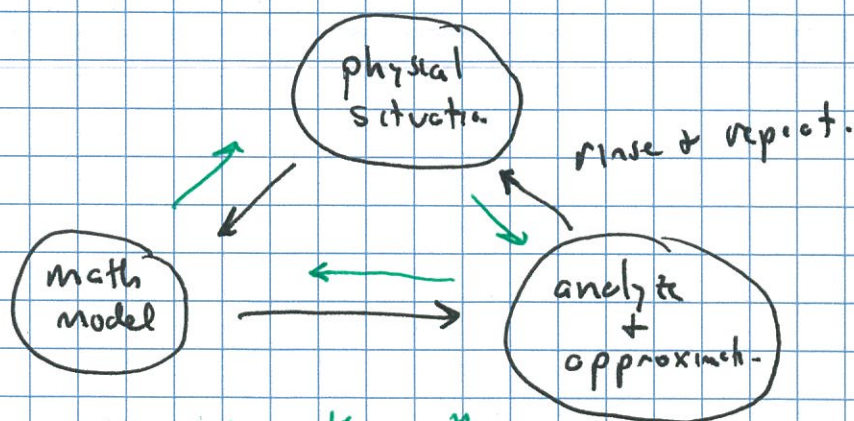 physical
situation
rinse + repeat.
math
model
analyze
+
approximate